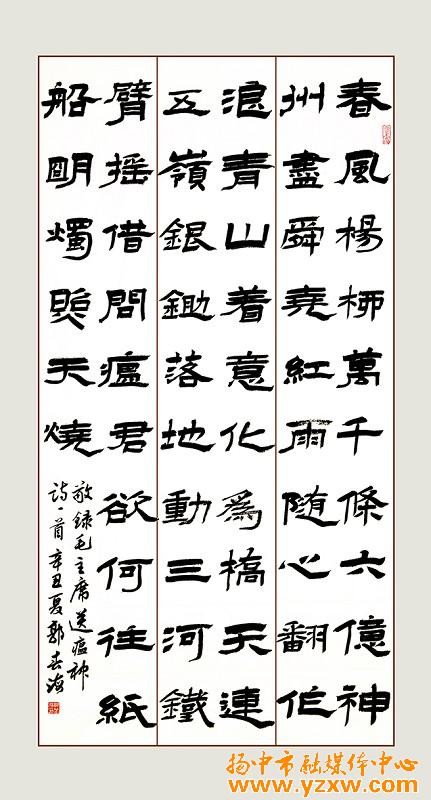 春風楊柳萬千條六億神
州盡舜堯紅雨随心翻作
浪青山着意化為橋天連
五嶺銀鋤落地動三河鐵
臂摇借問瘟君欲何往紙
船明燭照天燒
敬録毛主席送瘟神
詩一首辛丑夏郭海
扬中市融媒体中心
www.yzxw.com